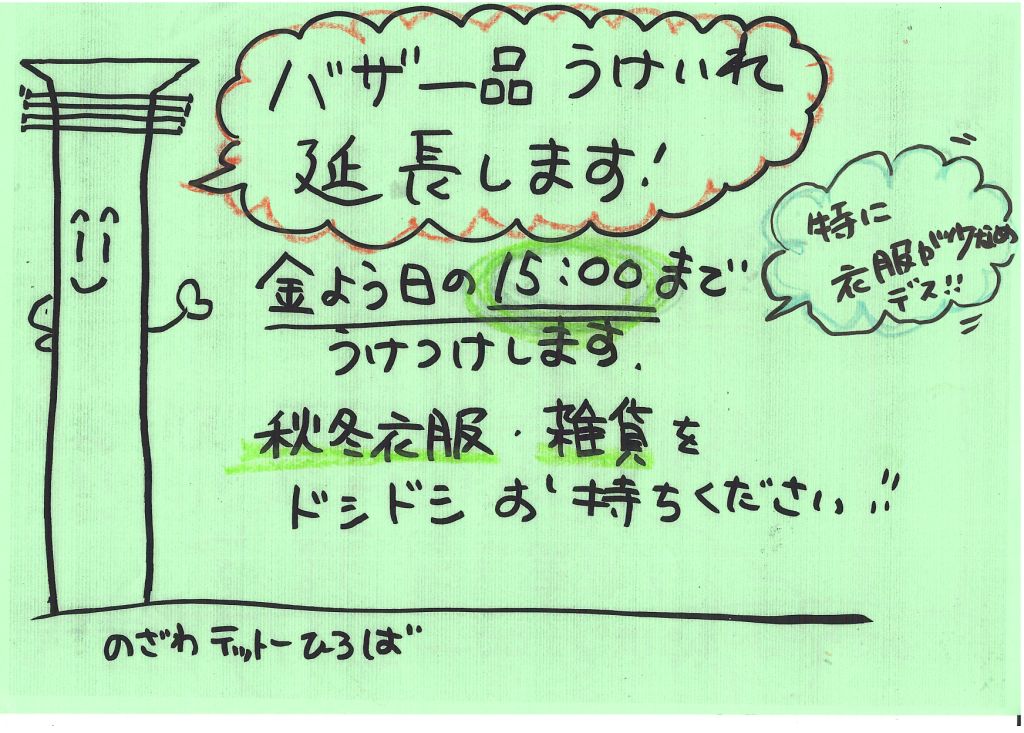 バザー品 うけいれ
延長します!
金よう日の 15:00 まで
うけつけします.
特に
衣服が
デス!!
秋冬衣服・雑貨を
ドシドシ お持ちください!!
のざわ テットーひろば